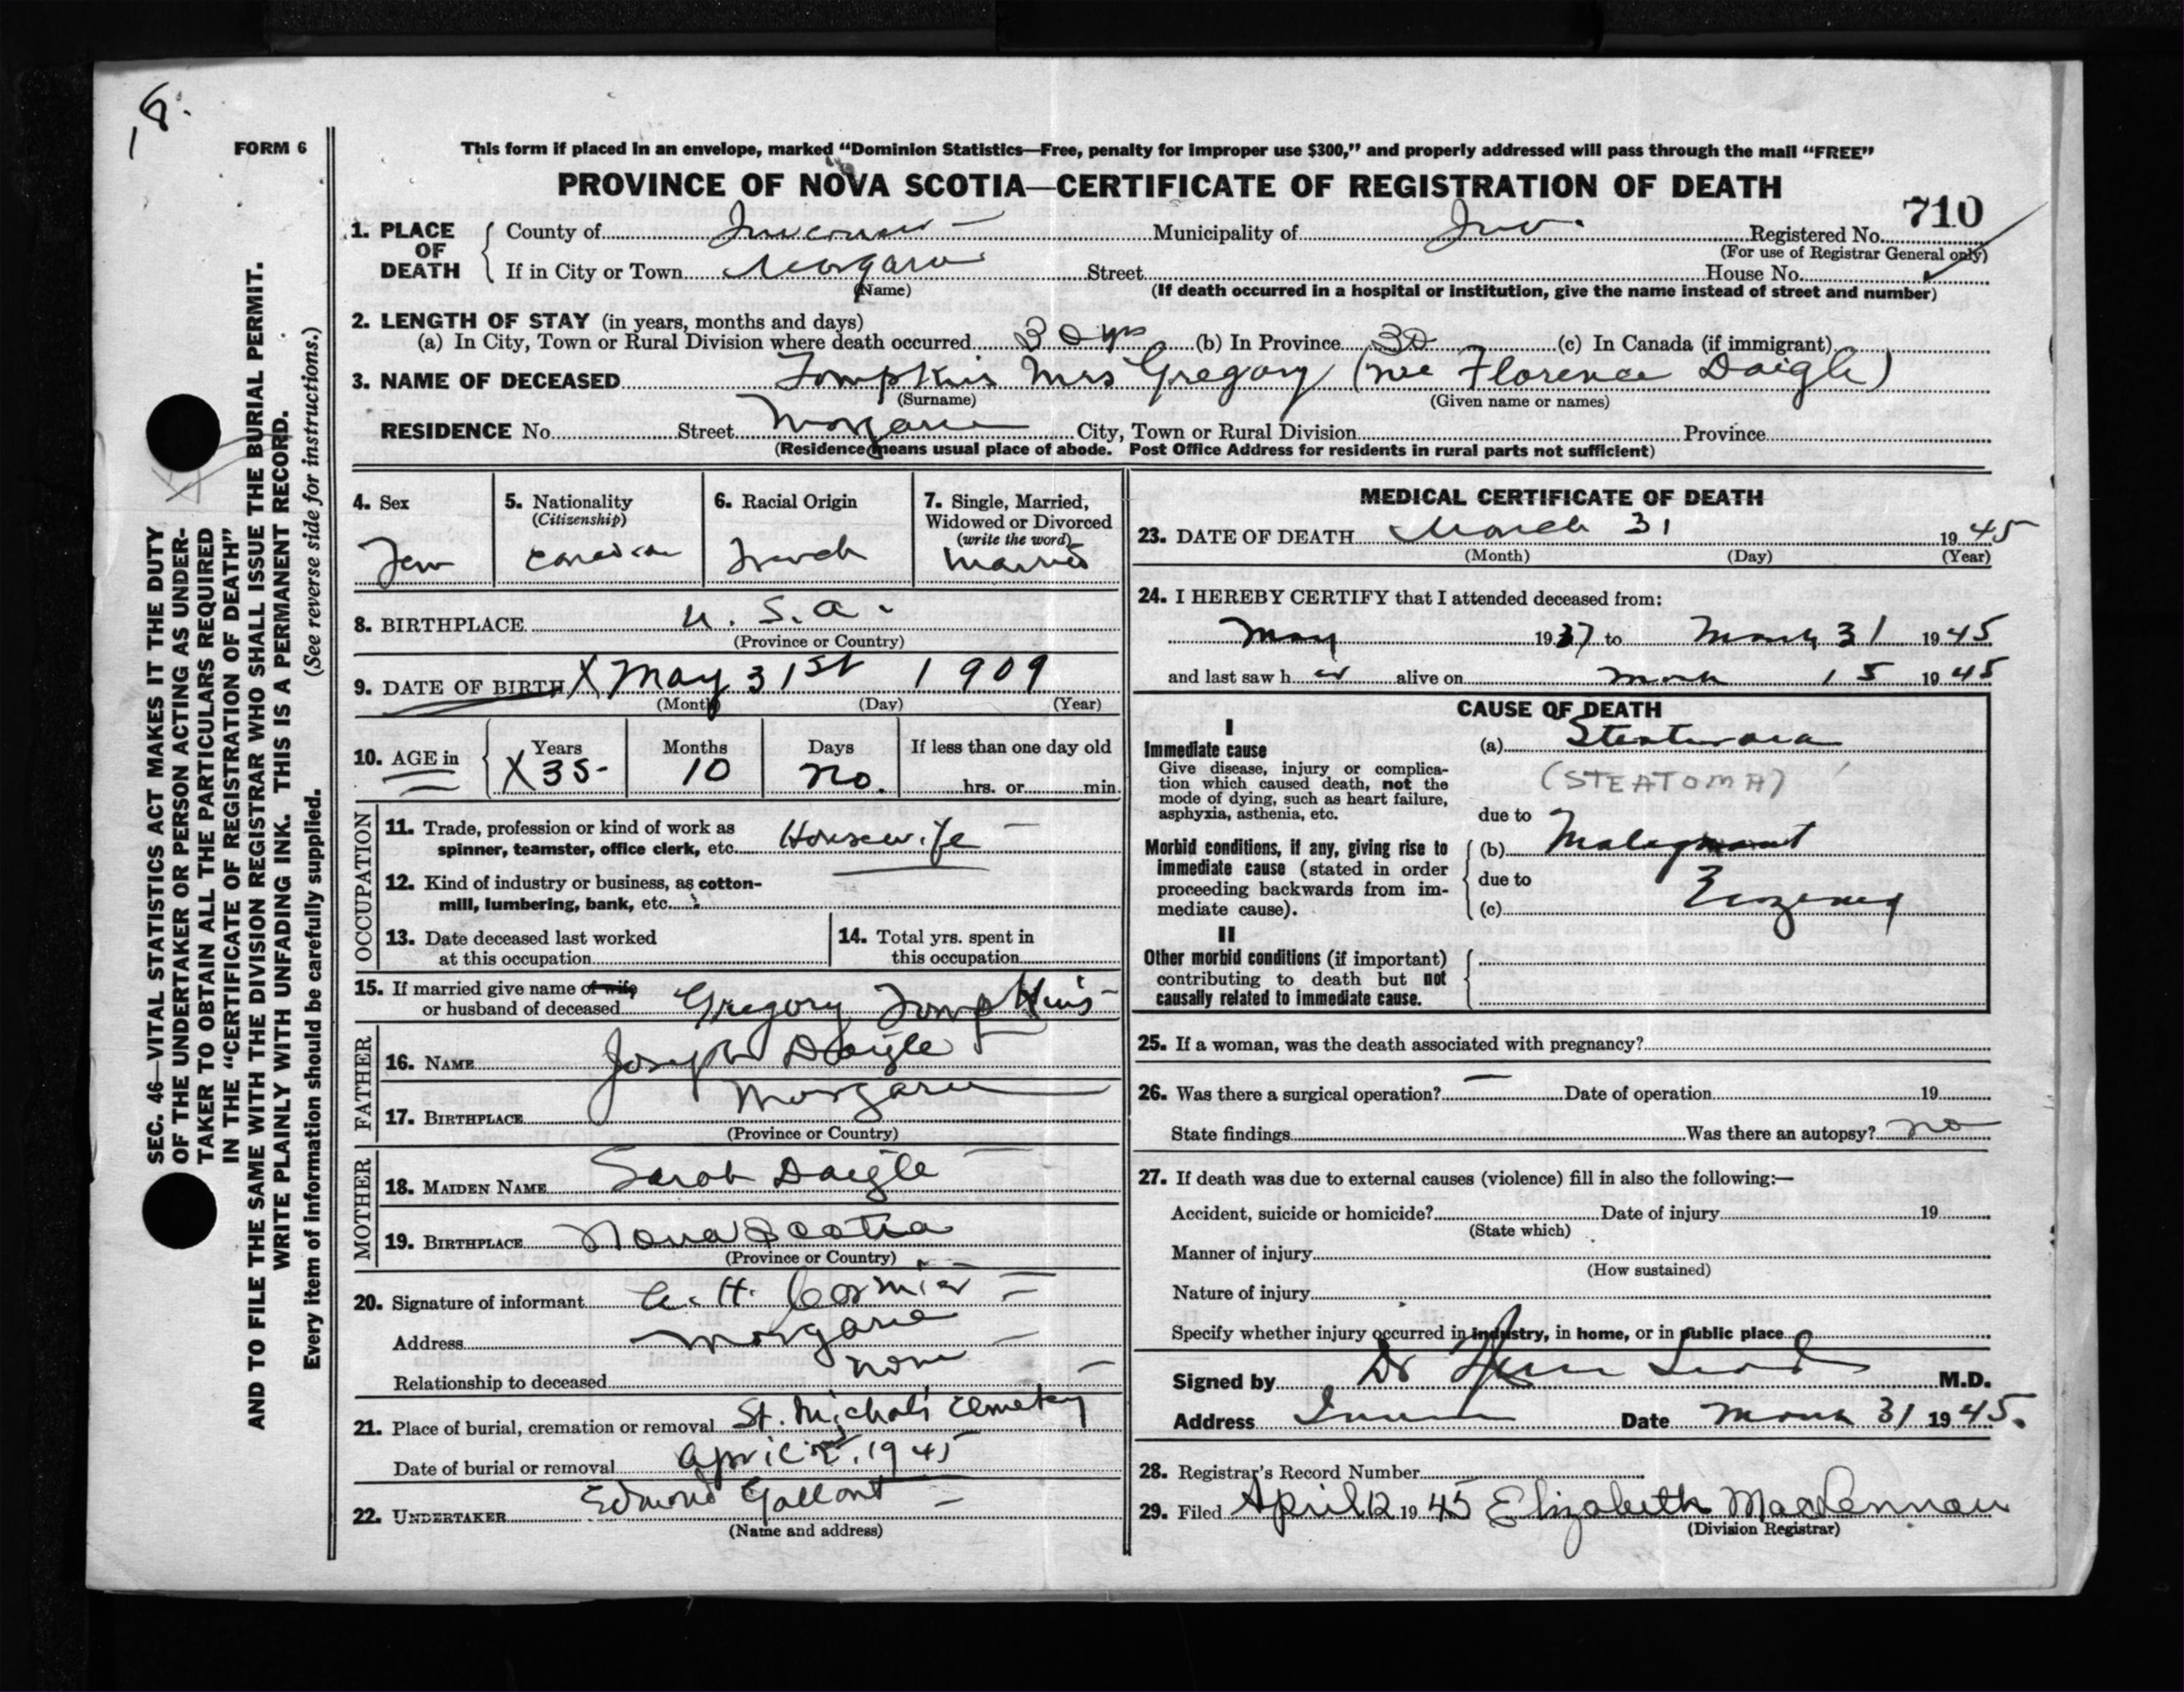 18.
FORM 6
This form if placed in an envelope, marked “Dominion Statistics—Free, penalty for improper use $300,” and properly addressed will pass through the mail “FREE”
PROVINCE OF NOVA SCOTIA—CERTIFICATE OF REGISTRATION OF DEATH
710
1. PLACE OF DEATH
County of Inverness
Municipality of Inv.
Registered No.
(For use of Registrar General only)
If in City or Town Margaree
Street
House No.
(Name)
(If death occurred in a hospital or institution, give the name instead of street and number)
2. LENGTH OF STAY (in years, months and days)
(a) In City, Town or Rural Division where death occurred 30 yrs (b) In Province 30 (c) In Canada (if immigrant)
3. NAME OF DECEASED Tompkins Mrs Gregory (nee Florence Daigle)
(Surname) (Given name or names)
RESIDENCE No. Street Margaree City, Town or Rural Division Province
(Residence means usual place of abode. Post Office Address for residents in rural parts not sufficient)
4. Sex
Fem
5. Nationality
(Citizenship)
Canadian
6. Racial Origin
French
7. Single, Married,
Widowed or Divorced
(write the word)
Married
8. BIRTHPLACE U.S.A.
(Province or Country)
9. DATE OF BIRTH X May 31st 1909
(Month) (Day) (Year)
10. AGE in
Years Months Days If less than one day old
X 35 10 no. hrs. or min.
OCCUPATION
11. Trade, profession or kind of work as
spinner, teamster, office clerk, etc. Housewife
12. Kind of industry or business, as cotton-
mill, lumbering, bank, etc.
13. Date deceased last worked
at this occupation
14. Total yrs. spent in
this occupation
15. If married give name of wife
or husband of deceased Gregory Tompkins
FATHER
16. NAME Joseph Daigle
17. BIRTHPLACE Margaree
(Province or Country)
MOTHER
18. MAIDEN NAME Sarah Daigle
19. BIRTHPLACE Nova Scotia
(Province or Country)
20. Signature of informant H. Cormier
Address Margaree
Relationship to deceased none
21. Place of burial, cremation or removal St. Michael's Cemetery
Date of burial or removal April 2, 1945
22. UNDERTAKER Edmond Gallant
(Name and address)
MEDICAL CERTIFICATE OF DEATH
23. DATE OF DEATH March 31 1945
(Month) (Day) (Year)
24. I HEREBY CERTIFY that I attended deceased from:
May 1937 to March 31 1945
and last saw her alive on March 15 1945
CAUSE OF DEATH
I
Immediate cause
Give disease, injury or complica-
tion which caused death, not the
mode of dying, such as heart failure,
asphyxia, asthenia, etc.
(a)
(STEATOMA)
due to
Morbid conditions, if any, giving rise to
immediate cause (stated in order
proceeding backwards from im-
mediate cause).
(b) Malignant
due to
(c)
II
Other morbid conditions (if important)
contributing to death but not
causally related to immediate cause.
25. If a woman, was the death associated with pregnancy?
26. Was there a surgical operation? — Date of operation 19
State findings Was there an autopsy? no
27. If death was due to external causes (violence) fill in also the following:—
Accident, suicide or homicide? Date of injury 19
(State which)
Manner of injury
(How sustained)
Nature of injury
Specify whether injury occurred in industry, in home, or in public place
Signed by Dr M.D.
Address Date March 31 1945.
28. Registrar's Record Number
29. Filed April 12 1945 Elizabeth MacLennan
(Division Registrar)
SEC. 46—VITAL STATISTICS ACT MAKES IT THE DUTY
OF THE UNDERTAKER OR PERSON ACTING AS UNDER-
TAKER TO OBTAIN ALL THE PARTICULARS REQUIRED
IN THE “CERTIFICATE OF REGISTRATION OF DEATH”
AND TO FILE THE SAME WITH THE DIVISION REGISTRAR WHO SHALL ISSUE THE BURIAL PERMIT.
WRITE PLAINLY WITH UNFADING INK. THIS IS A PERMANENT RECORD.
Every item of information should be carefully supplied. (See reverse side for instructions.)